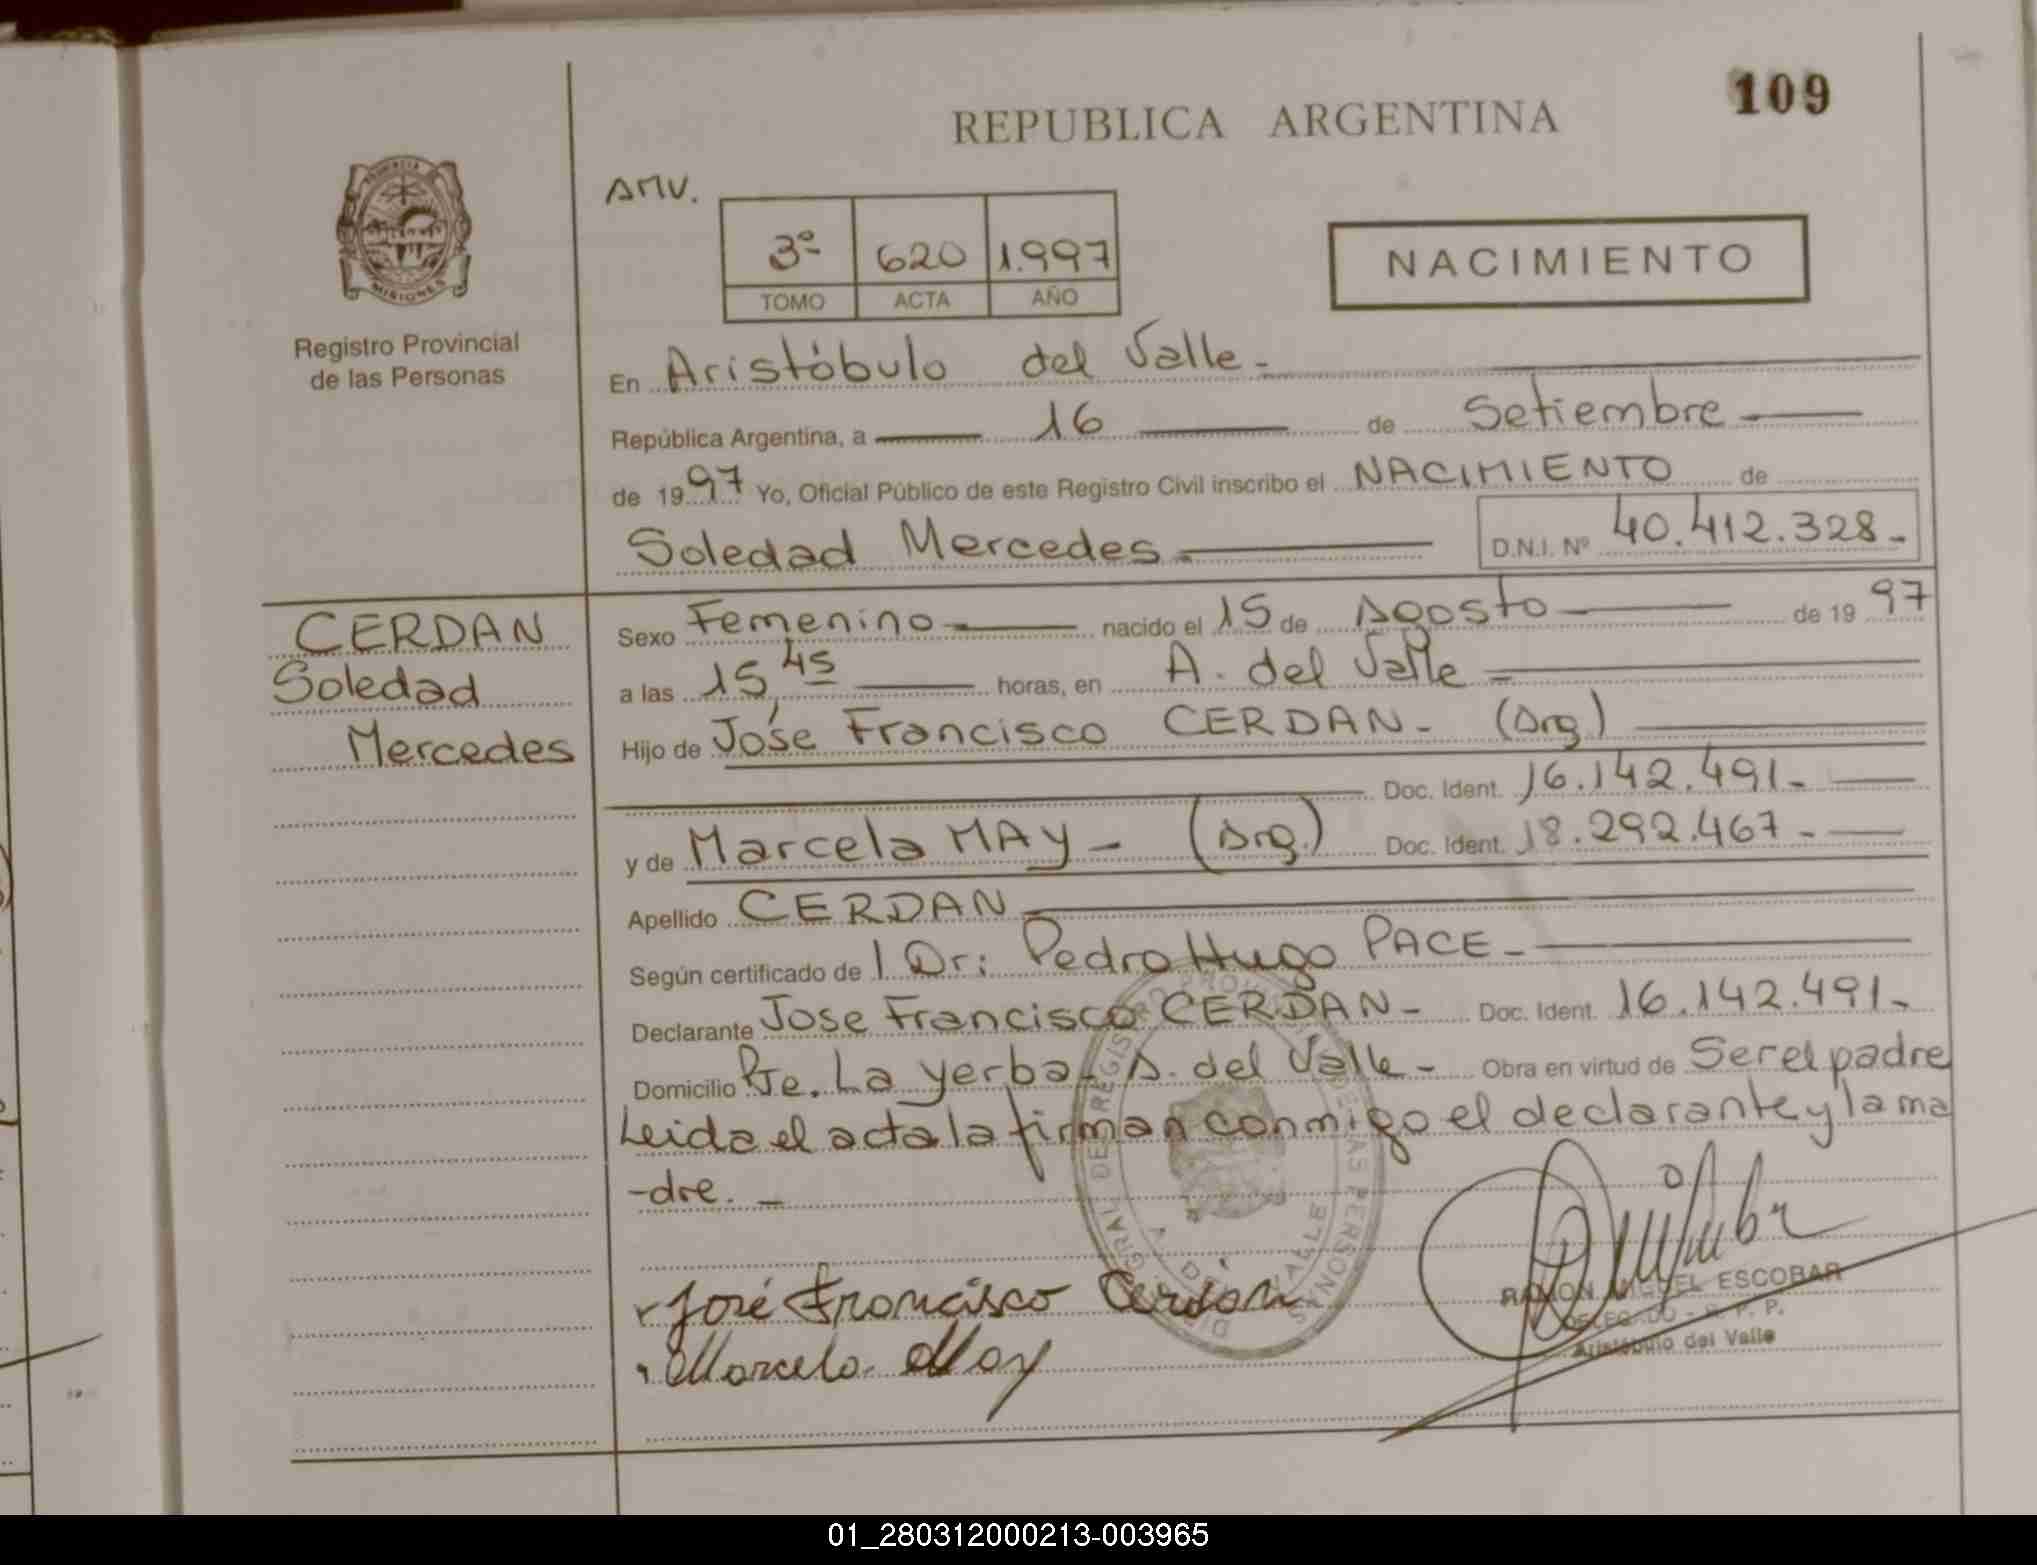 109
REPUBLICA ARGENTINA
AMV.
3º 620 1.997
TOMO ACTA AÑO
NACIMIENTO
PROVINCIA
MISIONES
Registro Provincial
de las Personas
En Aristóbulo del Valle.-
República Argentina, a 16 de Setiembre
de 1997 Yo, Oficial Público de este Registro Civil inscribo el NACIMIENTO de
Soledad Mercedes.- D.N.I. Nº 40.412.328.-
CERDAN
Soledad
Mercedes
Sexo Femenino nacido el 15 de Agosto de 1997
a las 15,45 horas, en A. del Valle
Hijo de José Francisco CERDAN- (Arg)
Doc. Ident. 16.142.491-
y de Marcela MAY- (Arg.) Doc. Ident. 18.292.467-
Apellido CERDAN
Según certificado de l Dr: Pedro Hugo PACE-
Declarante Jose Francisco CERDAN- Doc. Ident. 16.142.491-
Domicilio Pje. La yerba- A. del Valle- Obra en virtud de Ser el padre
Leida el acta la firman conmigo el declarante y la ma
-dre.-
José Francisco Cerdán
Marcela May
RAMON MIGUEL ESCOBAR
DELEGADO - R. P. P.
Aristóbulo del Valle
01_280312000213-003965